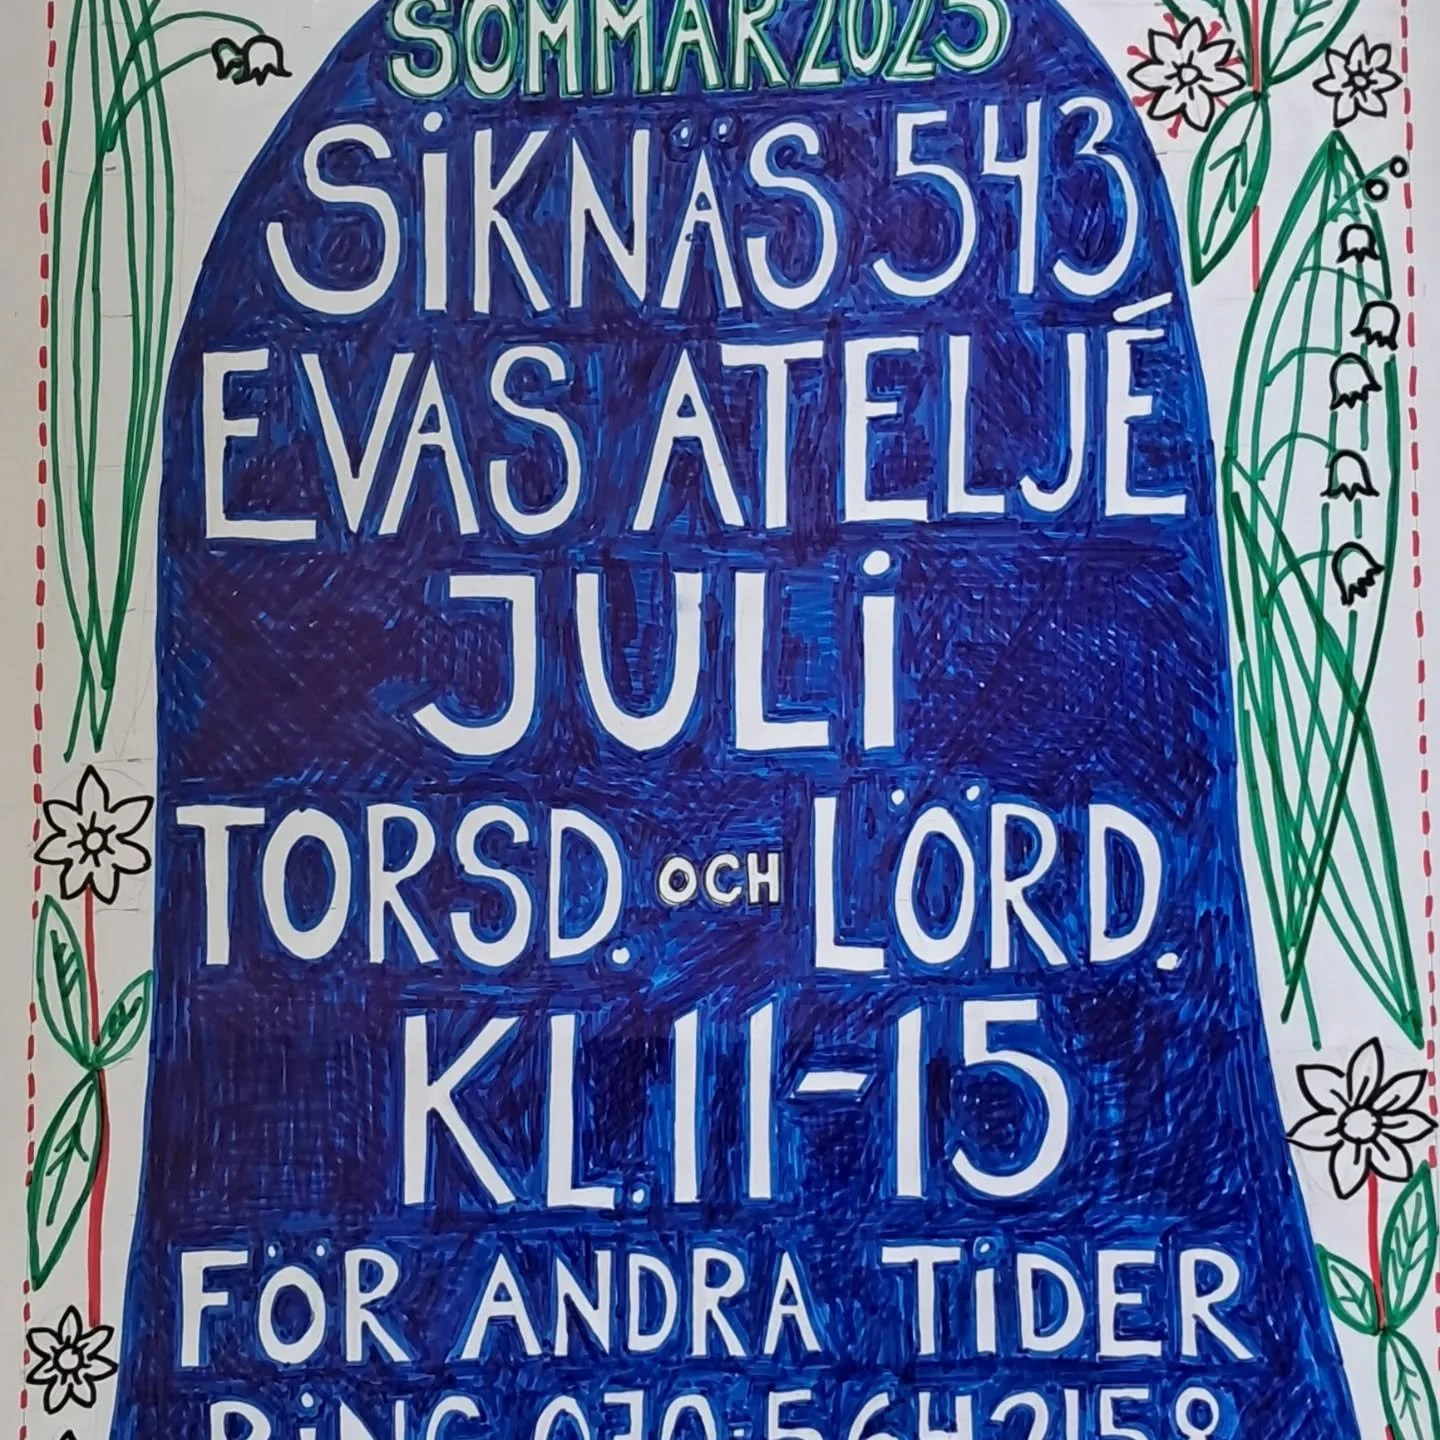 SOMMAR 2025
SIKNÄS 543
EVAS ATELJÉ
JULI
TORSD. OCH LÖRD.
KL.11-15
FÖR ANDRA TIDER
RING 070-5642158